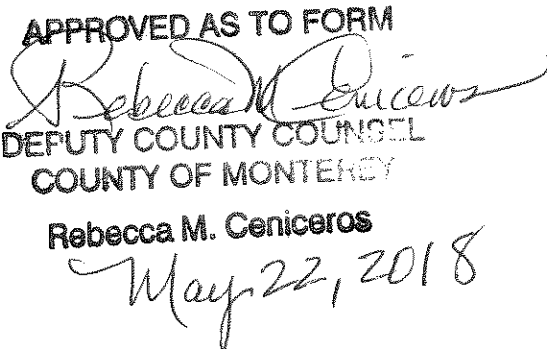 APPROVED AS TO FORM
Rebecca M Ceniceros
DEPUTY COUNTY COUNSEL
COUNTY OF MONTEREY
Rebecca M. Ceniceros
May 22, 2018